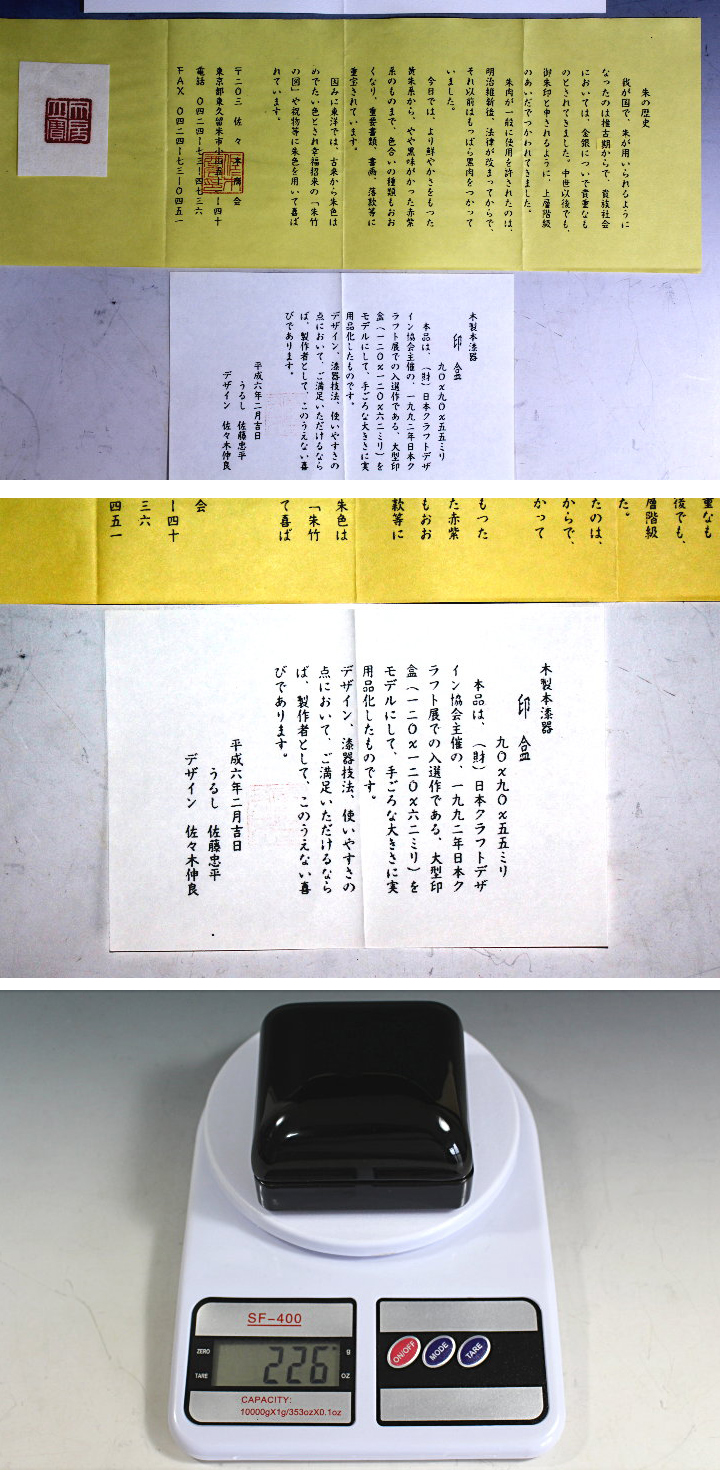 朱の歴史
我が国で、朱が用いられるように
なったのは推古期からで、貴族社会
においては、金銀について貴重なも
のとされてきました。中世以後でも、
御朱印と申されるように、上層階級
のあいだでつかわれてきました。
朱肉が一般に使用を許されたのは、
明治維新後、法律が改まってからで、
それ以前はもっぱら黒肉をつかって
いました。
今日では、より鮮やかさをもった
黄朱系から、やや黒味がかった赤紫
系のものまで、色合いの種類もおお
くなり、重要書類、書画、落款等に
重宝されています。
因みに東洋では、古来から朱色は
めでたい色とされ幸福招来の「朱竹
の図」や祝物等に朱色を用いて喜ば
れています。
〒二〇三 佐々木 会
東京都東久留米市小山五十三ー四十
電話 〇四二四ー七三ー四七三六
FAX 〇四二四ー七三ー〇四五一
木製本漆器
印盒
九〇×九〇×五五ミリ
本品は、(財)日本クラフトデザ
イン協会主催の、一九九二年日本ク
ラフト展での入選作である、大型印
盒(一二〇×一二〇×六二ミリ)を
モデルにして、手ごろな大きさに実
用品化したものです。
デザイン、漆器技法、使いやすさの
点において、ご満足いただけるなら
ば、製作者として、このうえない喜
びであります。
平成六年二月吉日
うるし 佐藤忠平
デザイン 佐々木伸良
重なも
後でも、
層階級
た。
たのは、
からで、
かって
もった
た赤紫
もおお
款等に
朱色は
「朱竹
て喜ば
会
ー四十
三六
四五一
木製本漆器
印盒
九〇×九〇×五五ミリ
本品は、(財)日本クラフトデザ
イン協会主催の、一九九二年日本ク
ラフト展での入選作である、大型印
盒(一二〇×一二〇×六二ミリ)を
モデルにして、手ごろな大きさに実
用品化したものです。
デザイン、漆器技法、使いやすさの
点において、ご満足いただけるなら
ば、製作者として、このうえない喜
びであります。
平成六年二月吉日
うるし 佐藤忠平
デザイン 佐々木伸良
SF-400
ZERO
226
g
TARE
OZ
CAPACITY:
10000gX1g/353ozX0.1oz
ON/OFF
MODE
TARE